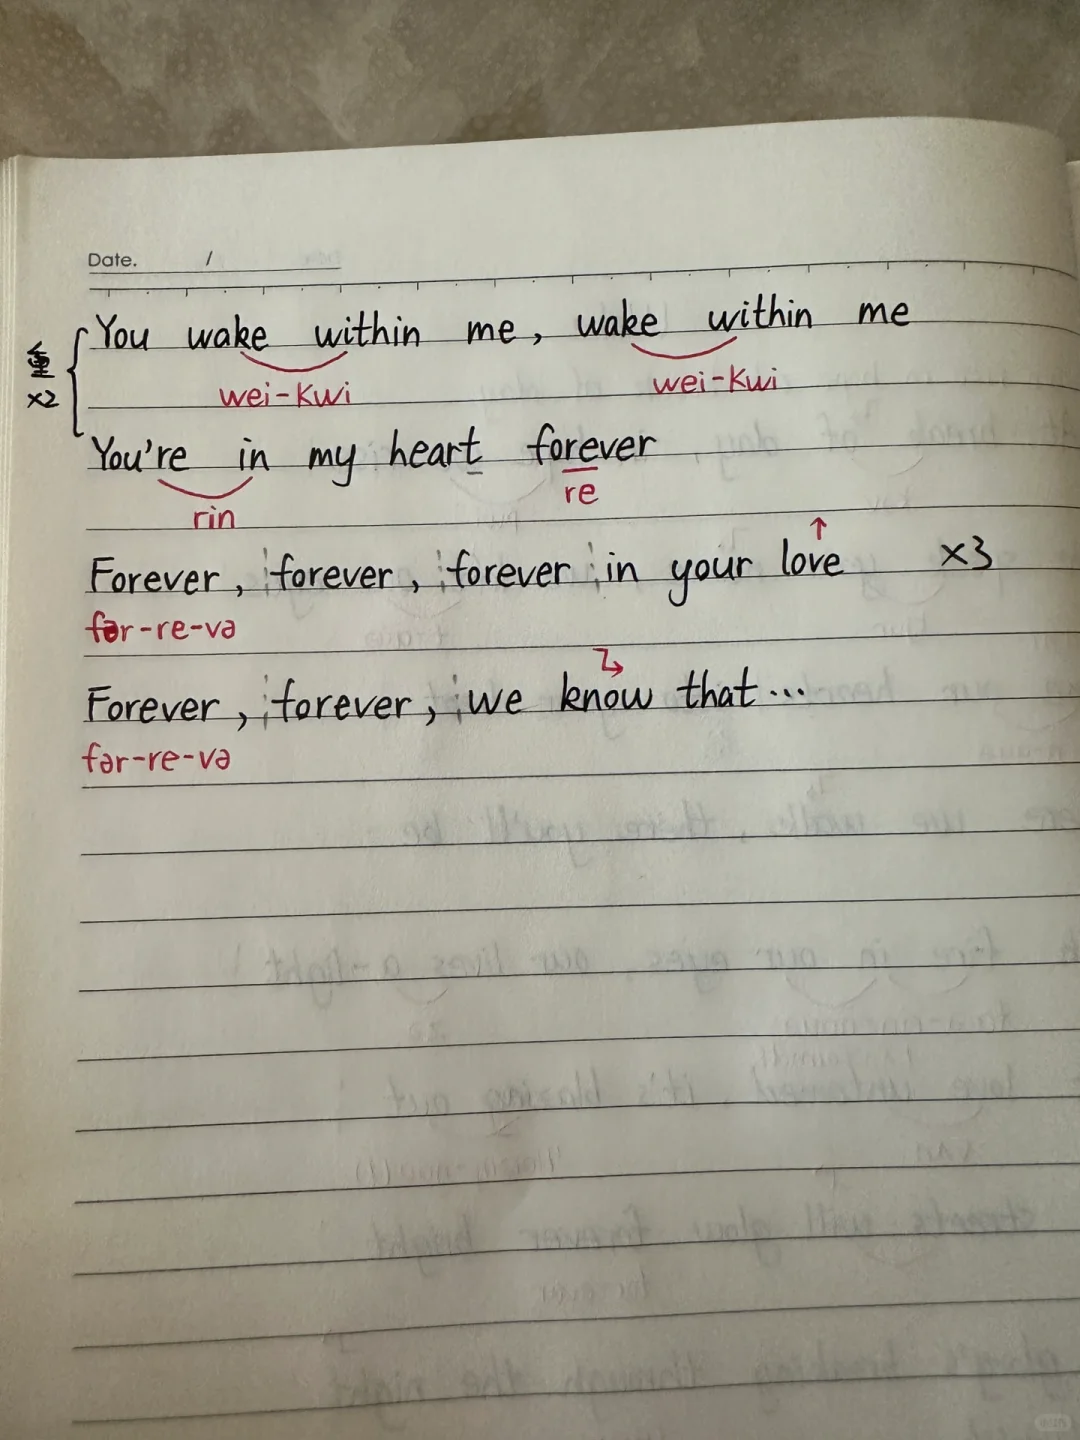 Date. /
You wake within me, wake within me
重
x2
wei-kwi wei-kwi
You're in my heart forever
rin re
Forever, forever, forever in your love x3
fər-re-və
Forever, forever, we know that...
fər-re-və